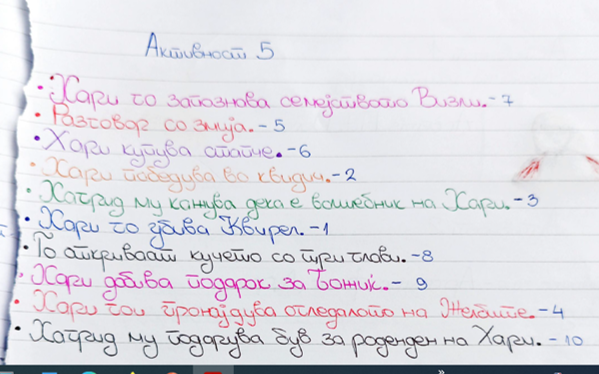 Активност 5
• Хари го запознава семејството Визли. - 7
• Разговор со змија. - 5
• Хари купува стапче. - 6
• Хари победува во квидич. - 2
• Хагрид му кажува дека е волшебник на Хари. - 3
• Хари го убива Квирел. - 1
• Го откриваат кучето со три глави. - 8
• Хари добива подарок за Божиќ. - 9
• Хари гои пронајдува огледалото на Желбите. - 4
• Хагрид му подарува був за роденден на Хари. - 10